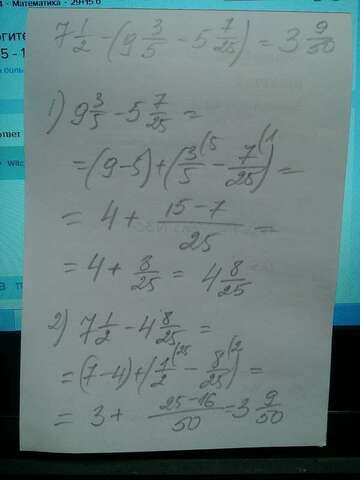 4 - Математика - 29+15.6
7 1/2 - (9 3/5 - 5 7/25) = 3 9/50
1) 9 3/5 - 5 7/25 =
= (9-5) + (3/5 (5 - 7/25 (1) =
= 4 + 15-7/25 =
= 4 + 8/25 = 4 8/25
2) 7 1/2 - 4 8/25 =
= (7-4) + (1/2 (25 - 8/25 (2) =
= 3 + 25-16/50 = 3 9/50